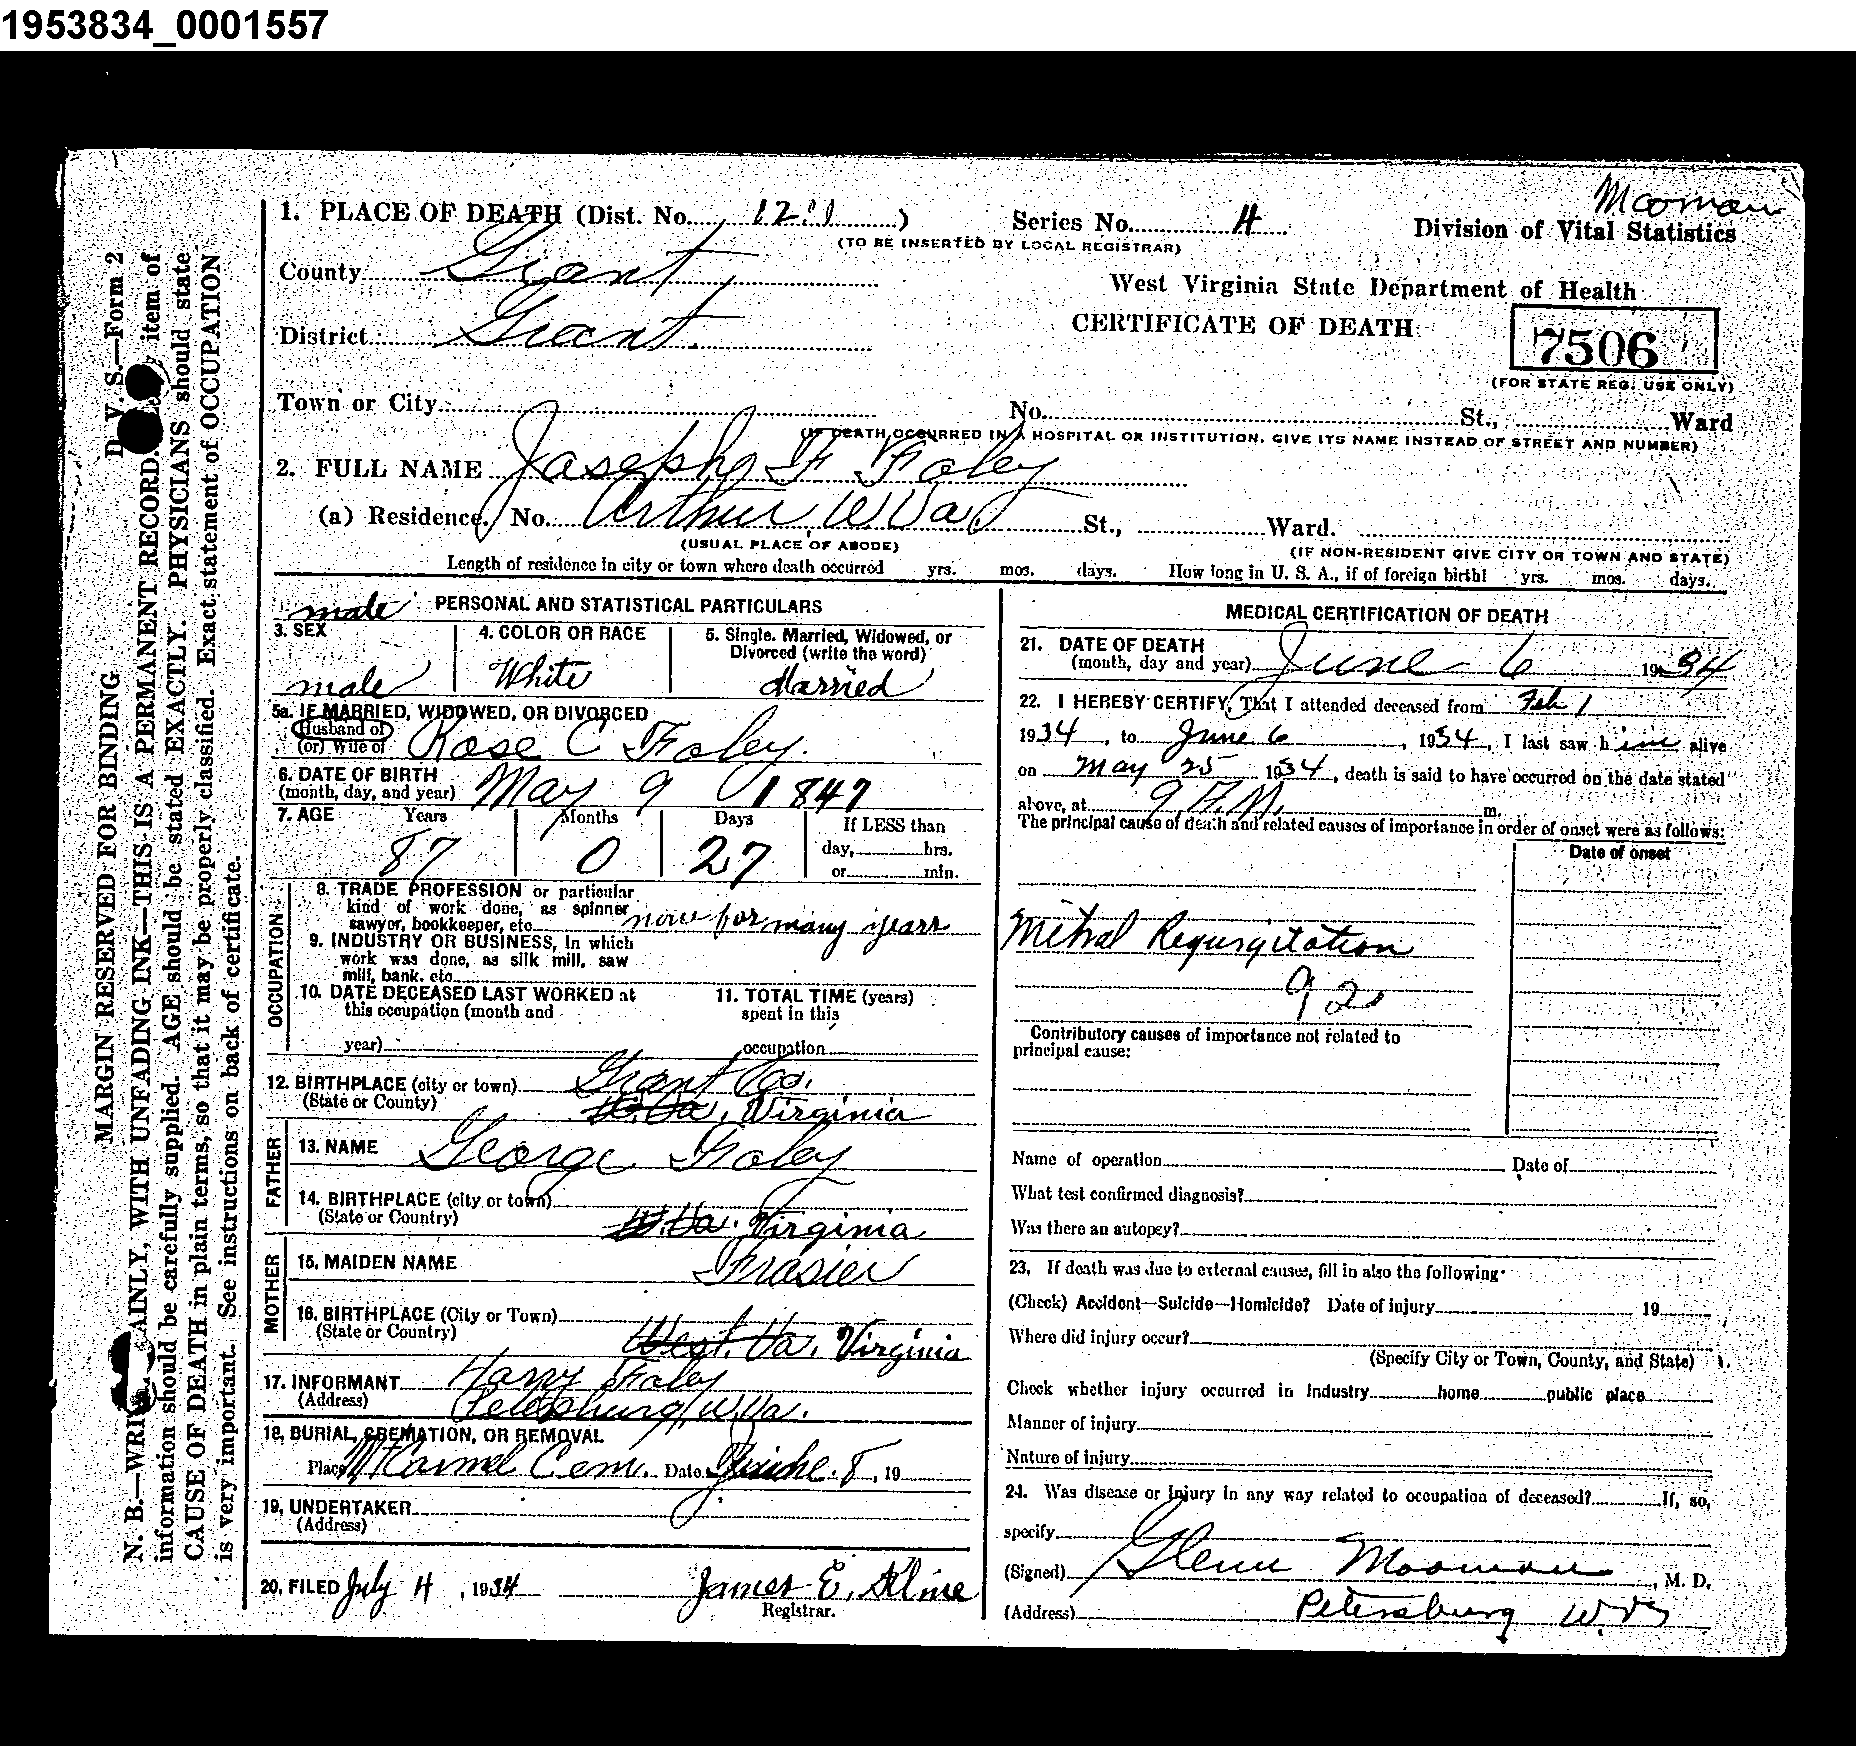 1953834_0001557
Mooman
1. PLACE OF DEATH (Dist. No. 1211) Series No. 4 Division of Vital Statistics
(TO BE INSERTED BY LOCAL REGISTRAR)
County Grant
West Virginia State Department of Health
District Grant.
CERTIFICATE OF DEATH
7506
(FOR STATE REG. USE ONLY)
Town or City No. St., Ward
(IF DEATH OCCURRED IN A HOSPITAL OR INSTITUTION, GIVE ITS NAME INSTEAD OF STREET AND NUMBER)
2. FULL NAME F Foley
(a) Residence. No. Arthur W Va St., Ward.
(USUAL PLACE OF ABODE) (IF NON-RESIDENT GIVE CITY OR TOWN AND STATE)
Length of residence in city or town where death occurred yrs. mos. days. How long in U. S. A., if of foreign birth? yrs. mos. days.
male PERSONAL AND STATISTICAL PARTICULARS
3. SEX 4. COLOR OR RACE 5. Single, Married, Widowed, or
Divorced (write the word)
male White Married
5a. IF MARRIED, WIDOWED, OR DIVORCED
Husband of
(or) Wife of Rose C Foley.
6. DATE OF BIRTH
(month, day, and year) May 9 1847
7. AGE Years Months Days If LESS than
87 0 27 day, hrs.
or min.
OCCUPATION
8. TRADE PROFESSION or particular
kind of work done, as spinner
sawyer, bookkeeper, etc. none for many years
9. INDUSTRY OR BUSINESS, in which
work was done, as silk mill, saw
mill, bank. etc.
10. DATE DECEASED LAST WORKED at 11. TOTAL TIME (years)
this occupation (month and spent in this
year) occupation
12. BIRTHPLACE (city or town) Grant Co.
(State or County) W. Va. Virginia
FATHER
13. NAME George Foley
14. BIRTHPLACE (city or town)
(State or Country) W. Va. Virginia
MOTHER
15. MAIDEN NAME Frasier
16. BIRTHPLACE (City or Town)
(State or Country) West. Va. Virginia
17. INFORMANT Harry Foley
(Address) Petersburg, W.Va.
18. BURIAL, CREMATION, OR REMOVAL
Place Mt Carmel Cem. Date June 8, 19
19. UNDERTAKER
(Address)
20. FILED July 4, 1934 James E. Kline
Registrar.
MEDICAL CERTIFICATION OF DEATH
21. DATE OF DEATH
(month, day and year) June 6 1934
22. I HEREBY CERTIFY, That I attended deceased from Feb 1
1934, to June 6, 1934, I last saw him alive
on May 25 1934, death is said to have occurred on the date stated
above, at 9 A.M. m.
The principal cause of death and related causes of importance in order of onset were as follows:
Date of onset
Mitral Regurgitation
92
Contributory causes of importance not related to
principal cause:
Name of operation Date of
What test confirmed diagnosis?
Was there an autopsy?
23. If death was due to external causes, fill in also the following:
(Check) Accident—Suicide—Homicide? Date of injury 19
Where did injury occur?
(Specify City or Town, County, and State)
Check whether injury occurred in Industry home public place
Manner of injury
Nature of injury
24. Was disease or injury in any way related to occupation of deceased? If, so,
specify
(Signed) Glenn Mooman, M. D.
(Address) Petersburg W. Va
D. V. S.—Form 2
MARGIN RESERVED FOR BINDING
N. B.—WRITE PLAINLY, WITH UNFADING INK—THIS IS A PERMANENT RECORD. item of
information should be carefully supplied. AGE should be stated EXACTLY. PHYSICIANS should state
CAUSE OF DEATH in plain terms, so that it may be properly classified. Exact statement of OCCUPATION
is very important. See instructions on back of certificate.